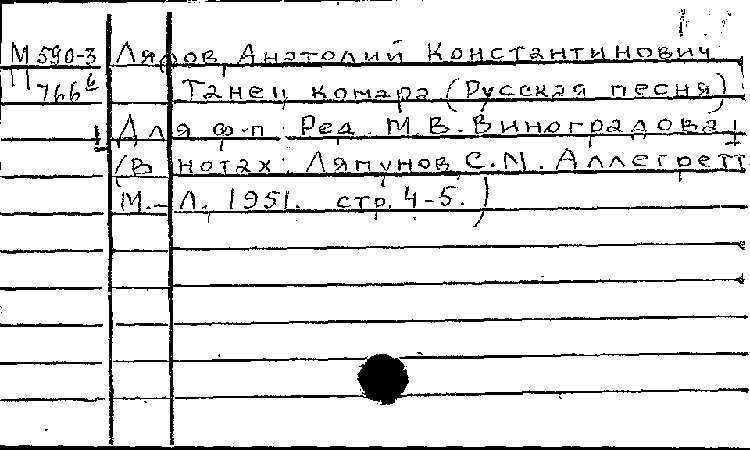 М 590-3 Лядов, Анатолий Константинович
П 766б Танец комара (Русская песня)
Для ф-п. Ред. М.В. Виноградова
(В нотах: Ляпунов, С.М. Аллегретт
М.-Л. 1951. стр. 4-5.)